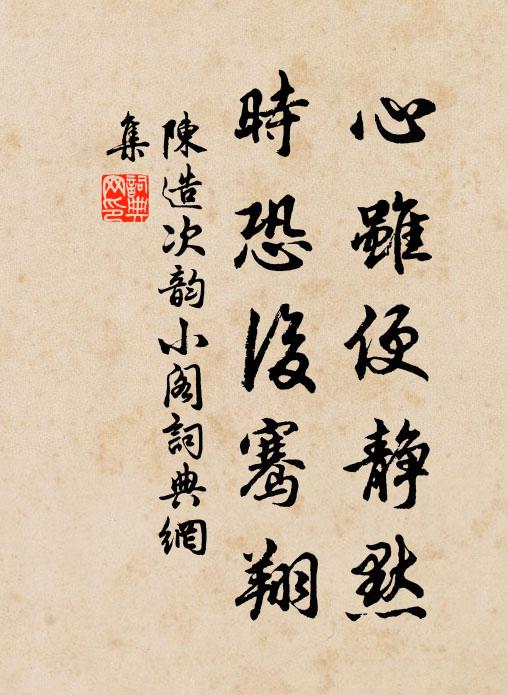 心雖便静默
時恐後騫翔
陳造次韵小阁詞典網
集
詞典
网印